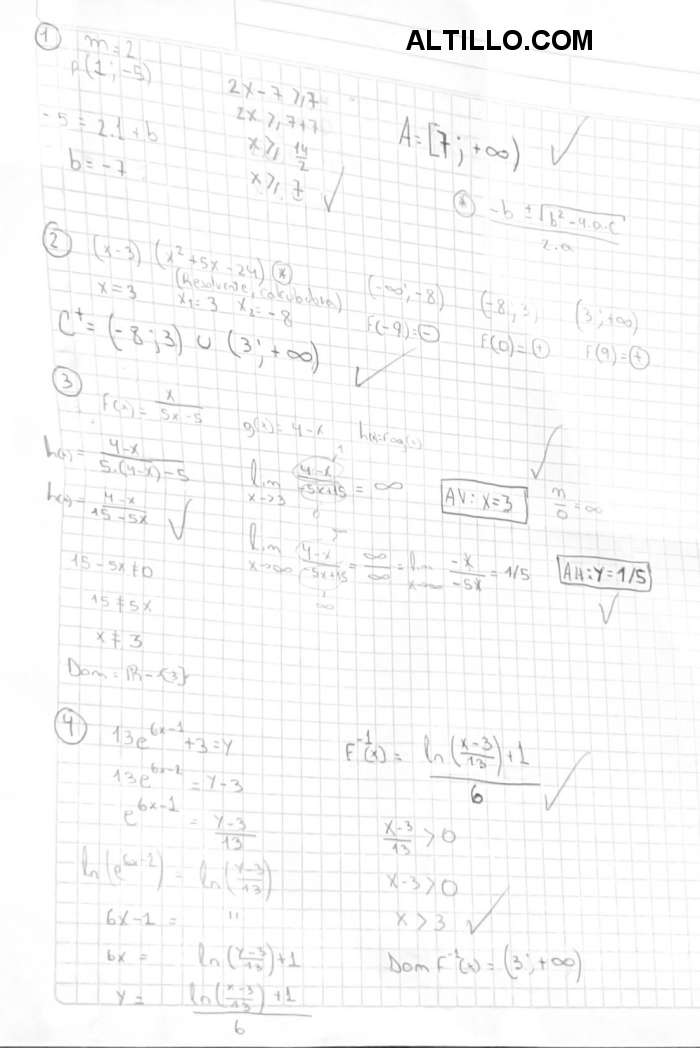 ALTILLO.COM
1
m=2
P(1;-5)
-5=2.1+b
b=-7
2x-7≥7
2x≥7+7
x≥14/2
x≥7
A=[7;+∞)
* (-b±√(b²-4.a.c))/(2.a)
2
(x-3)(x²+5x-24) *
x=3 (Resolvente, calculadora)
x₁=3 x₂=-8
C⁺=(-8;3)∪(3;+∞)
(-∞;-8) (-8;3) (3;+∞)
F(-9)=- F(0)=+ F(9)=+
3
F(x)=x/(5x-5) g(x)=4-x h(x)=fog(x)
h(x)=(4-x)/(5.(4-x)-5)
h(x)=(4-x)/(15-5x)
15-5x≠0
15≠5x
x≠3
Dom=ℝ-{3}
lim x->3 (4-x)/(-5x+15)=∞
1
0
AV: x=3
n/0=∞
lim x->∞ (4-x)/(-5x+15)=∞/∞=lim x->∞ -x/-5x=1/5
∞
AH: Y=1/5
4
13e^(6x-1)+3=Y
13e^(6x-1)=Y-3
e^(6x-1)=(Y-3)/13
ln(e^(6x-1))=ln((Y-3)/13)
6x-1= "
6x= ln((x-3)/13)+1
Y= (ln((x-3)/13)+1)/6
F⁻¹(x)=(ln((x-3)/13)+1)/6
(x-3)/13>0
x-3>0
x>3
Dom F⁻¹(x)=(3;+∞)